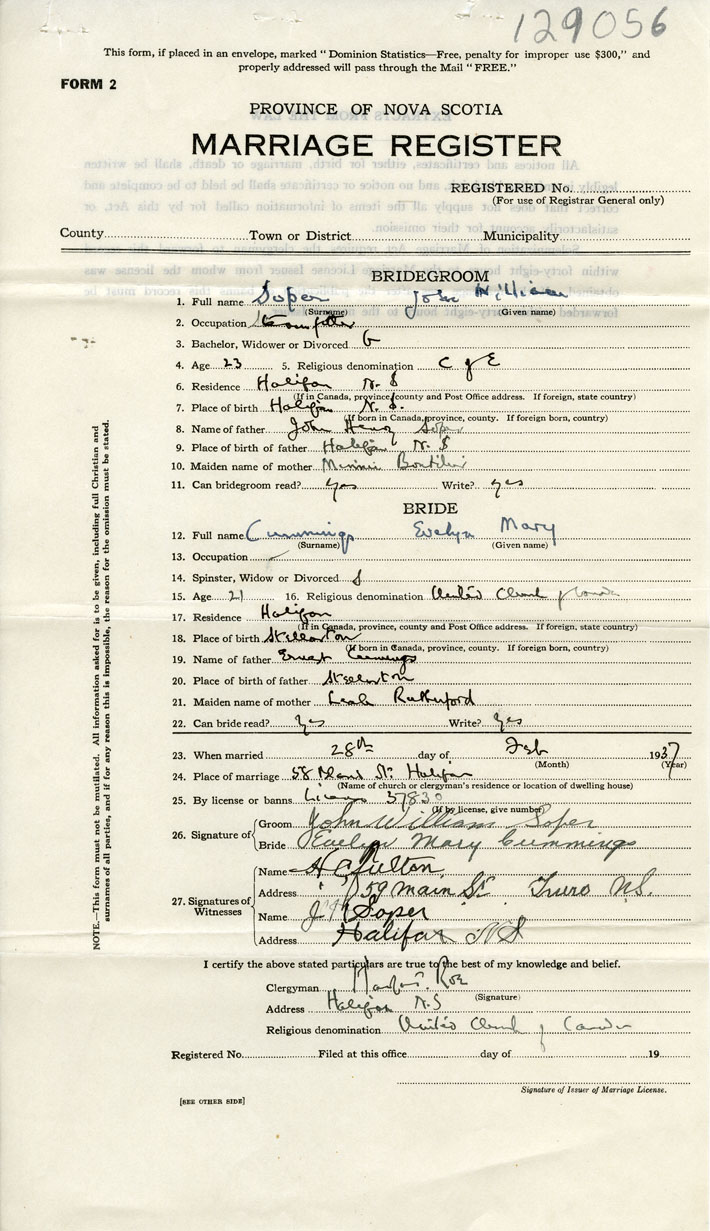 129056
This form, if placed in an envelope, marked "Dominion Statistics—Free, penalty for improper use $300," and
properly addressed will pass through the Mail "FREE."
FORM 2
PROVINCE OF NOVA SCOTIA
MARRIAGE REGISTER
REGISTERED No.
(For use of Registrar General only)
County Town or District Municipality
BRIDEGROOM
1. Full name Soper John William
(Surname) (Given name)
2. Occupation Steamfitter
3. Bachelor, Widower or Divorced B
4. Age 23 5. Religious denomination C of E
6. Residence Halifax N. S
(If in Canada, province, county and Post Office address. If foreign, state country)
7. Place of birth Halifax N. S.
(If born in Canada, province, county. If foreign born, country)
8. Name of father John Henry Soper
9. Place of birth of father Halifax N. S
10. Maiden name of mother Minnie Boutilier
11. Can bridegroom read? yes Write? yes
BRIDE
12. Full name Cummings Evelyn Mary
(Surname) (Given name)
13. Occupation
14. Spinster, Widow or Divorced S
15. Age 21 16. Religious denomination United Church of Canada
17. Residence Halifax
(If in Canada, province, county and Post Office address. If foreign, state country)
18. Place of birth Stellarton
(If born in Canada, province, county. If foreign born, country)
19. Name of father Ernest Cummings
20. Place of birth of father Stellarton
21. Maiden name of mother Leah Rutherford
22. Can bride read? Yes Write? Yes
23. When married 28th day of Feb 1937
(Month) (Year)
24. Place of marriage 58 St. Halifax
(Name of church or clergyman's residence or location of dwelling house)
25. By license or banns License 37830
(If by license, give number)
26. Signature of Groom John William Soper
Bride Evelyn Mary Cummings
27. Signatures of Witnesses
Name H A Fulton
Address 59 Main St. Truro N.S.
Name J H Soper
Address Halifax N S
I certify the above stated particulars are true to the best of my knowledge and belief.
Clergyman Roe
(Signature)
Address Halifax N.S
Religious denomination United Church of Canada
Registered No. Filed at this office day of 19
Signature of Issuer of Marriage License.
[SEE OTHER SIDE]
NOTE.—This form must not be mutilated. All information asked for is to be given, including full Christian and
surnames of all parties, and if for any reason this is impossible, the reason for the omission must be stated.